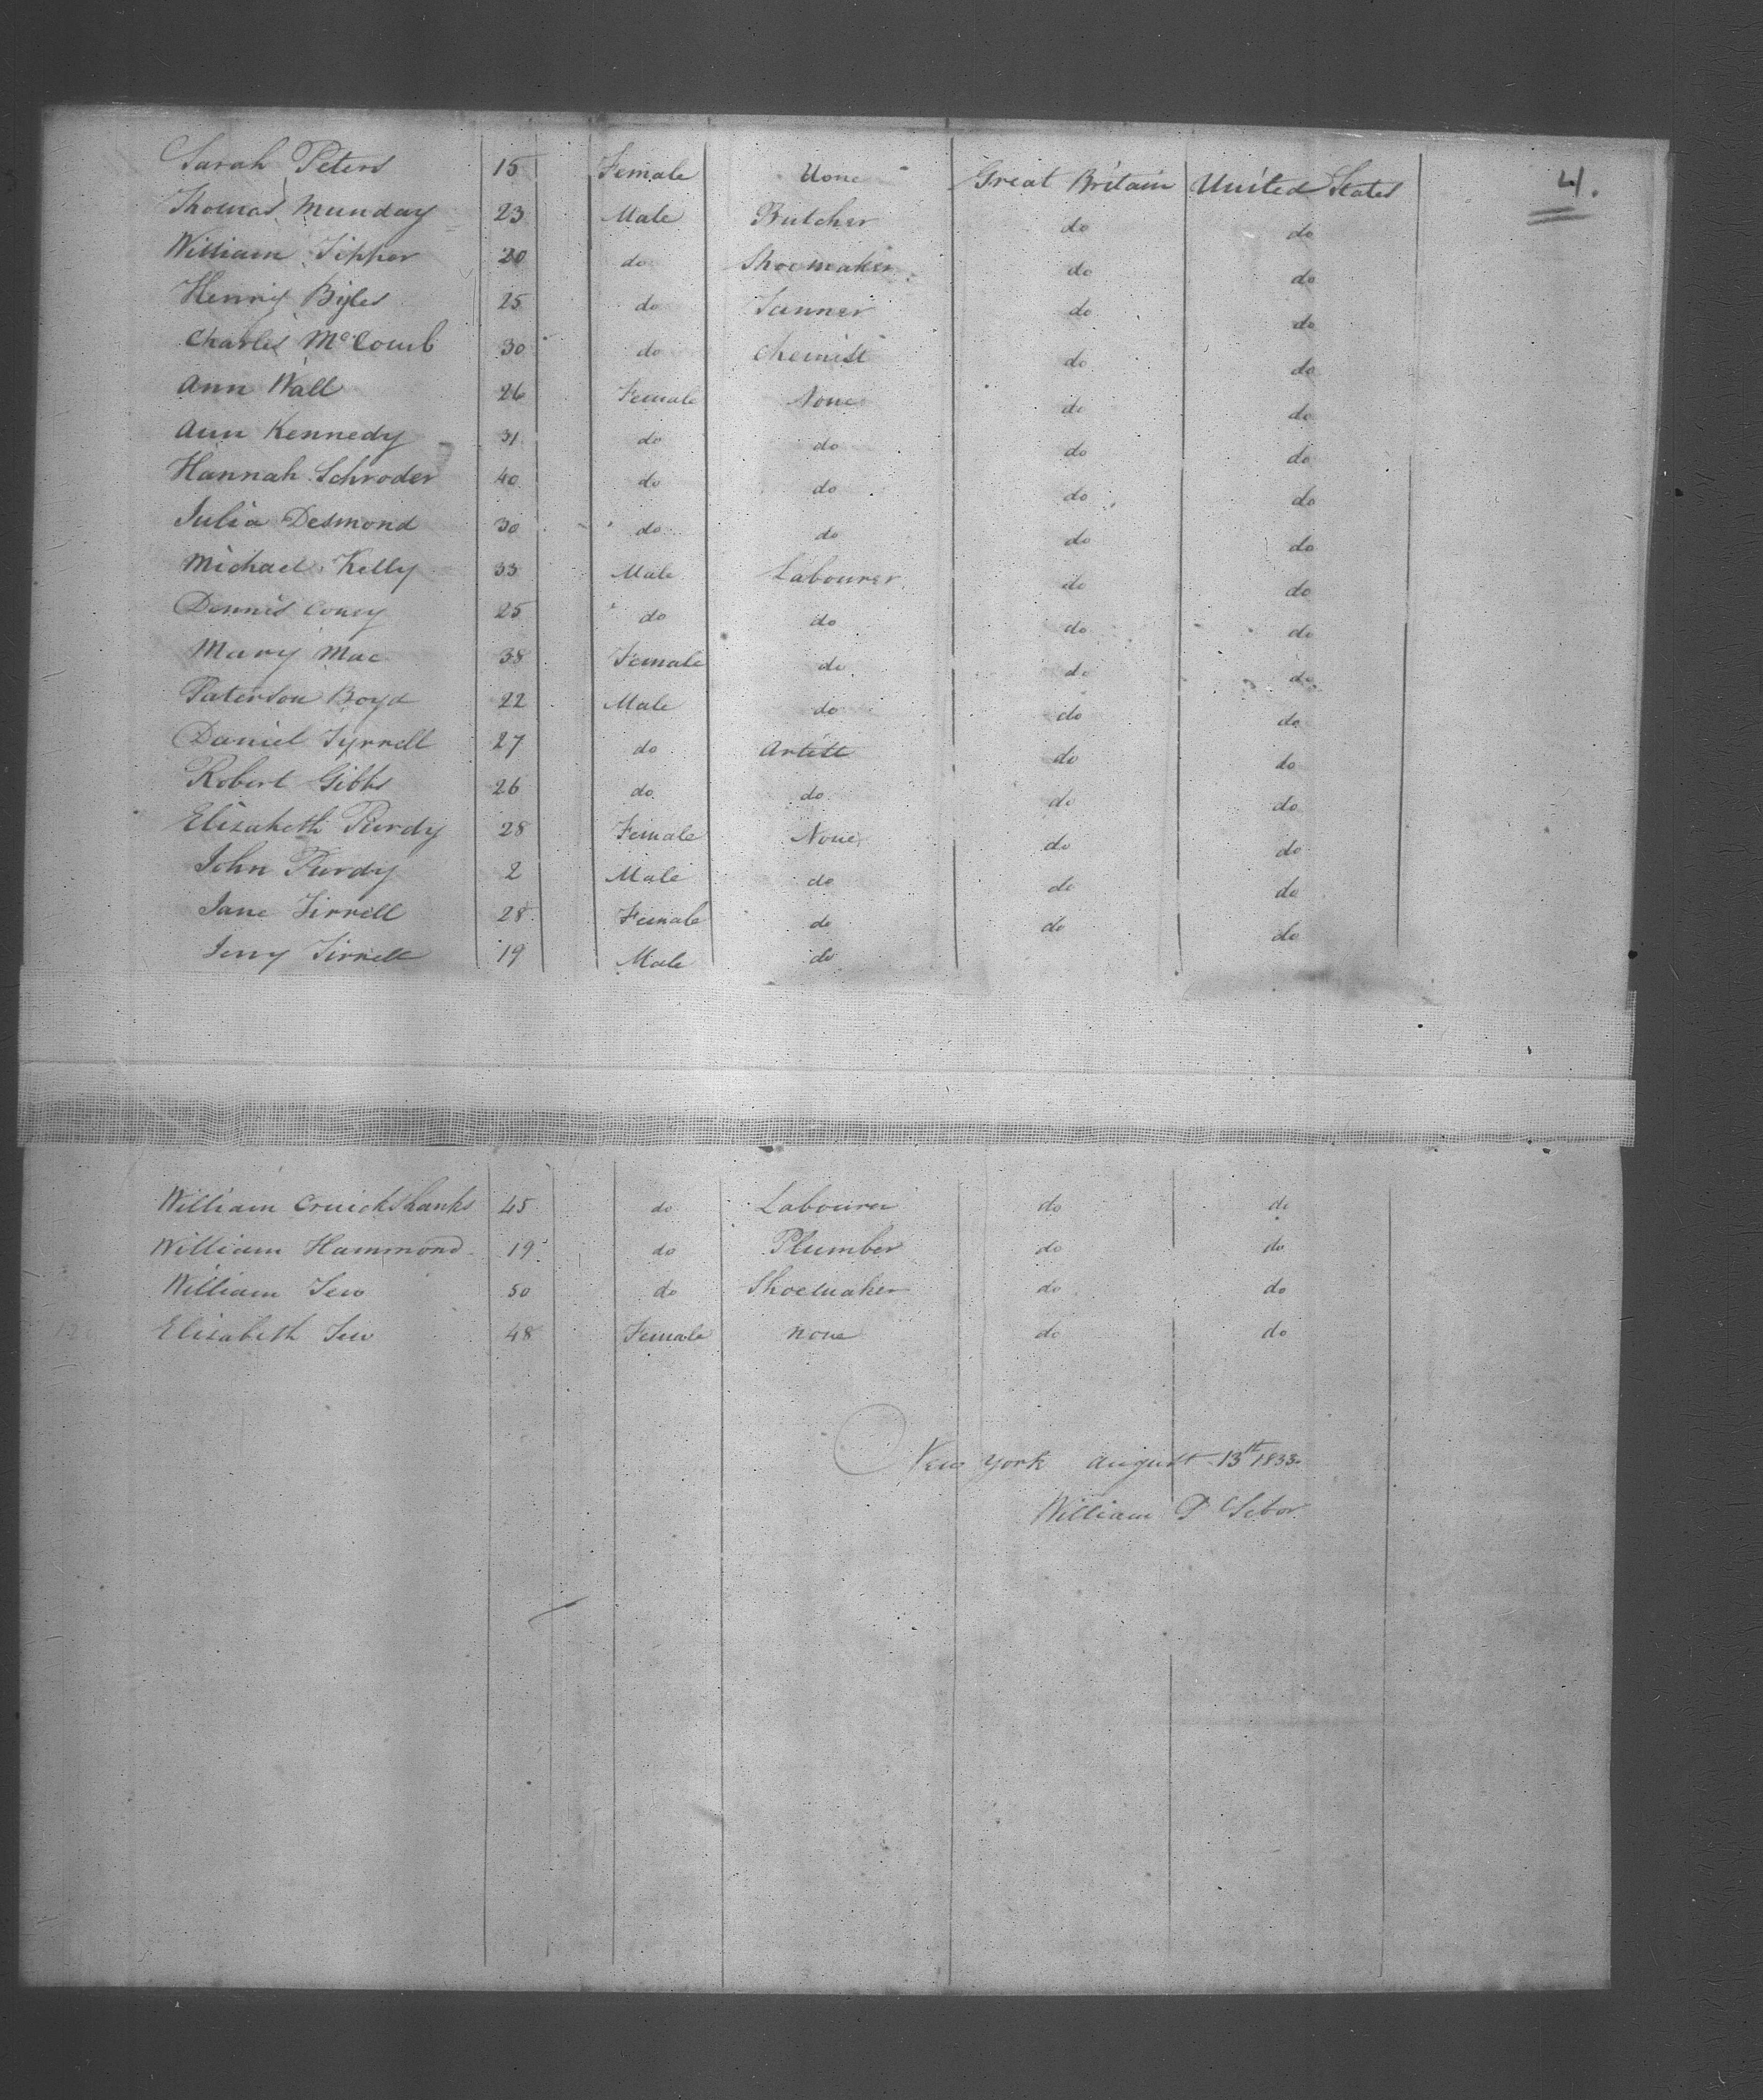 4.
Sarah Peters 15 Female None Great Britain United States
Thomas Munday 23 Male Butcher do do
William Tipper 20 do Shoemaker do do
Henry Byles 25 do Tanner do do
Charles McComb 30 do Chemist do do
Ann Wall 26 Female None do do
Ann Kennedy 31 do do do do
Hannah Schroder 40 do do do do
Julia Desmond 30 do do do do
Michael Kelly 33 Male Labourer do do
Dennis 25 do do do do
Mary Mac 38 Female do do do
Paterson Boyd 22 Male do do do
Daniel Tyrrell 27 do Artist do do
Robert Gibbs 26 do do do do
Elizabeth Purdy 28 Female None do do
John Purdy 2 Male do do do
Jane Tirrell 28 Female do do do
Tirrell 19 Male do
William Cruickshanks 45 do Labourer do do
William Hammond 19 do Plumber do do
William 50 do Shoemaker do do
Elizabeth 48 Female None do do
New York August 13th 1833
William P Sebor